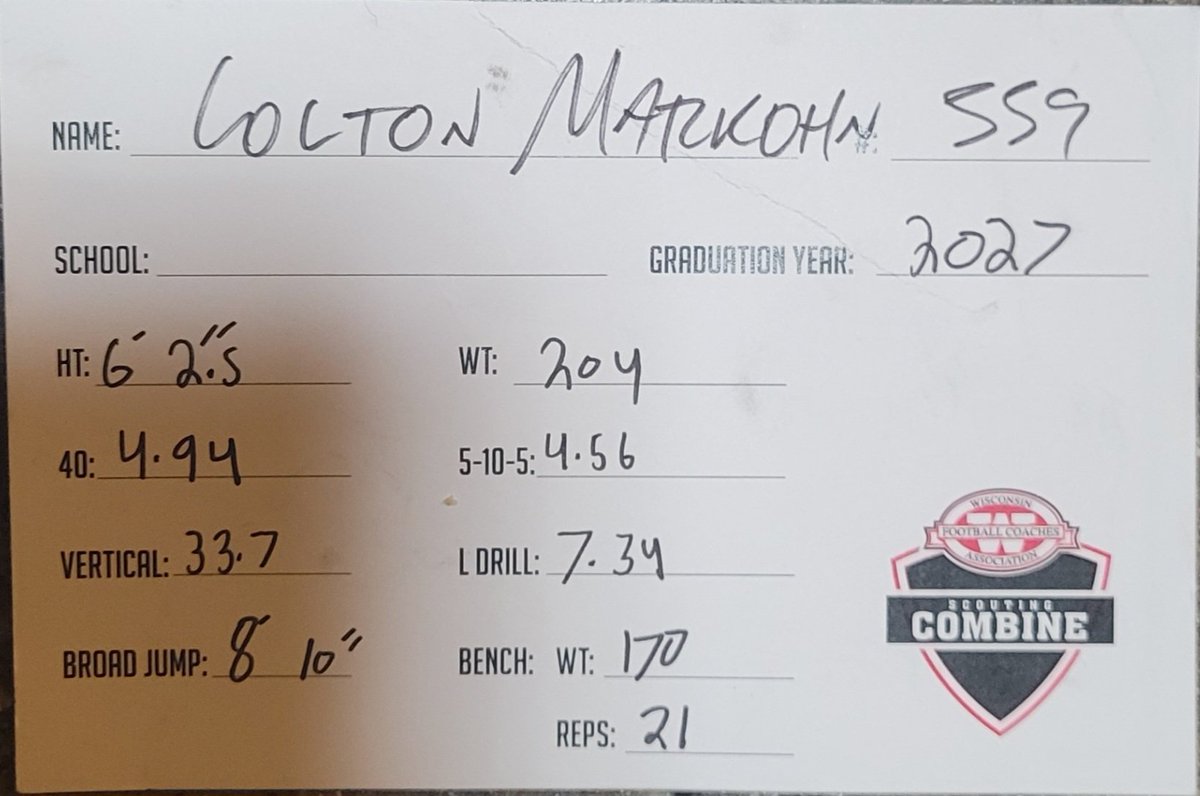 NAME: COLTON MARKOHN #: 559
SCHOOL: GRADUATION YEAR: 2027
HT: 6' 2".5 WT: 204
40: 4.94 5-10-5: 4.56
VERTICAL: 33.7 L DRILL: 7.34
BROAD JUMP: 8' 10" BENCH: WT: 170
REPS: 21
WISCONSIN
FOOTBALL COACHES
ASSOCIATION
SCOUTING
COMBINE